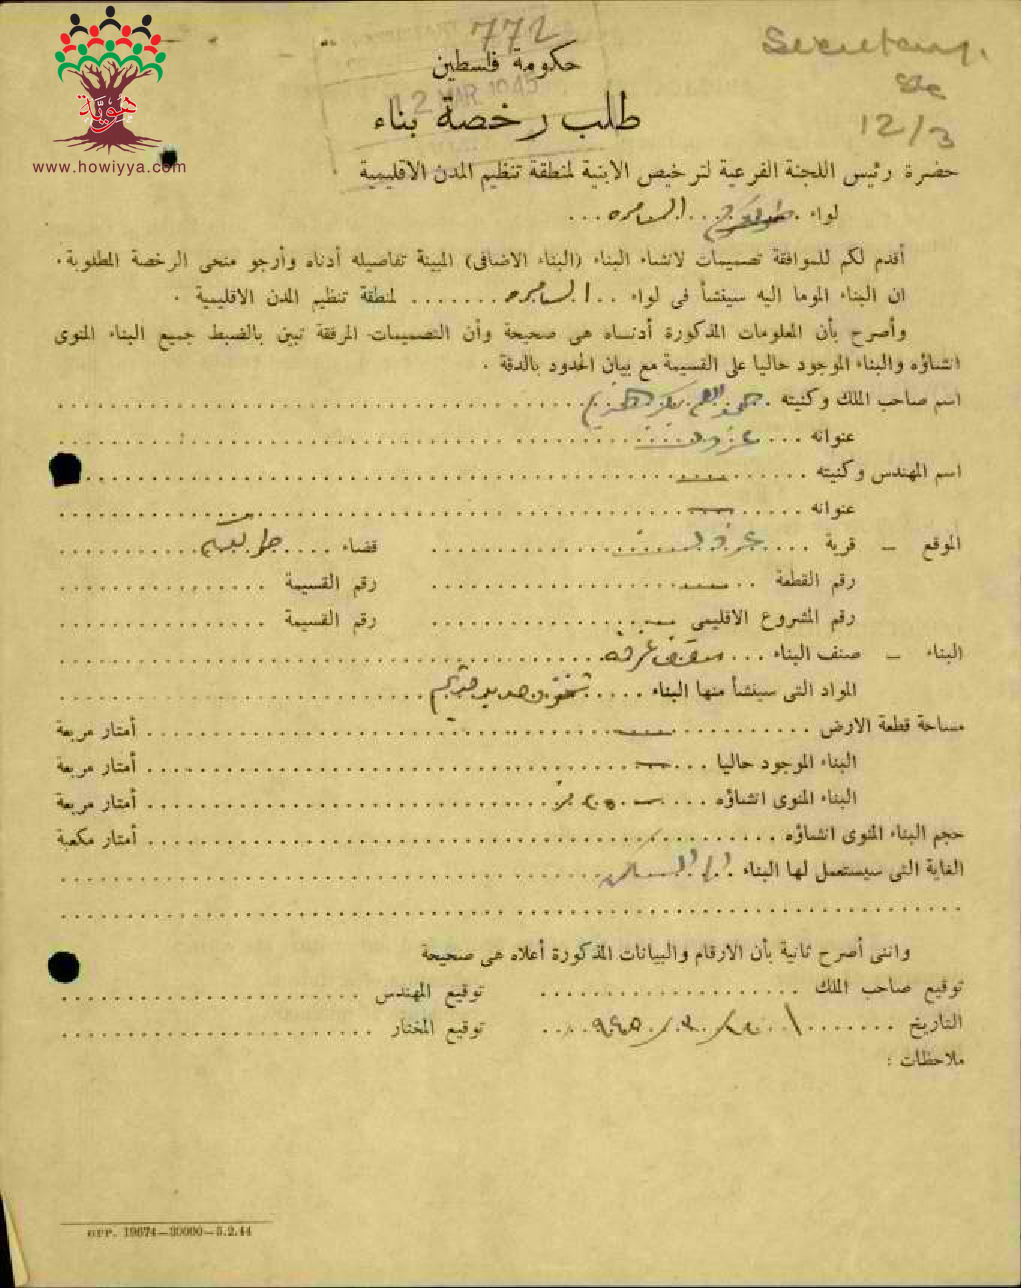 772
Secretary.
12/3
هوية
www.howiyya.com
12 MAR 1945
حكومة فلسطين
طلب رخصة بناء
حضرة رئيس اللجنة الفرعية لترخيص الابنية لمنطقة تنظيم المدن الاقليمية
لواء طولكرم السامره
أقدم لكم للموافقة تصميمات لانشاء البناء (البناء الاضافى) المبينة تفاصيله أدناه وأرجو منحى الرخصة المطلوبة .
ان البناء الموما اليه سينشأ فى لواء السامره لمنطقة تنظيم المدن الاقليمية .
وأصرح بأن المعلومات المذكورة أدنساه هى صحيحة وأن التصميمات المرفقة تبين بالضبط جميع البناء المنوى
انشاؤه والبناء الموجود حاليا على القسيمة مع بيان الحدود بالدقة .
اسم صاحب الملك وكنيته
عنوانه عزون
اسم المهندس وكنيته
عنوانه
الموقع — قرية عزون قضاء
رقم القطعة رقم القسيمة
رقم المشروع الاقليمى رقم القسيمة
البناء — صنف البناء سقف غرفة
المواد التى سينشأ منها البناء
مساحة قطعة الارض أمتار مربعة
البناء الموجود حاليا أمتار مربعة
البناء المنوى انشاؤه أمتار مربعة
حجم البناء المنوى انشاؤه أمتار مكعبة
الغاية التى سيستعمل لها البناء
وانى أصرح ثانية بأن الارقام والبيانات المذكورة أعلاه هى صحيحة
توقيع صاحب الملك توقيع المهندس
التاريخ توقيع المختار
ملاحظات :
GPP. 19674—30000—5.2.44